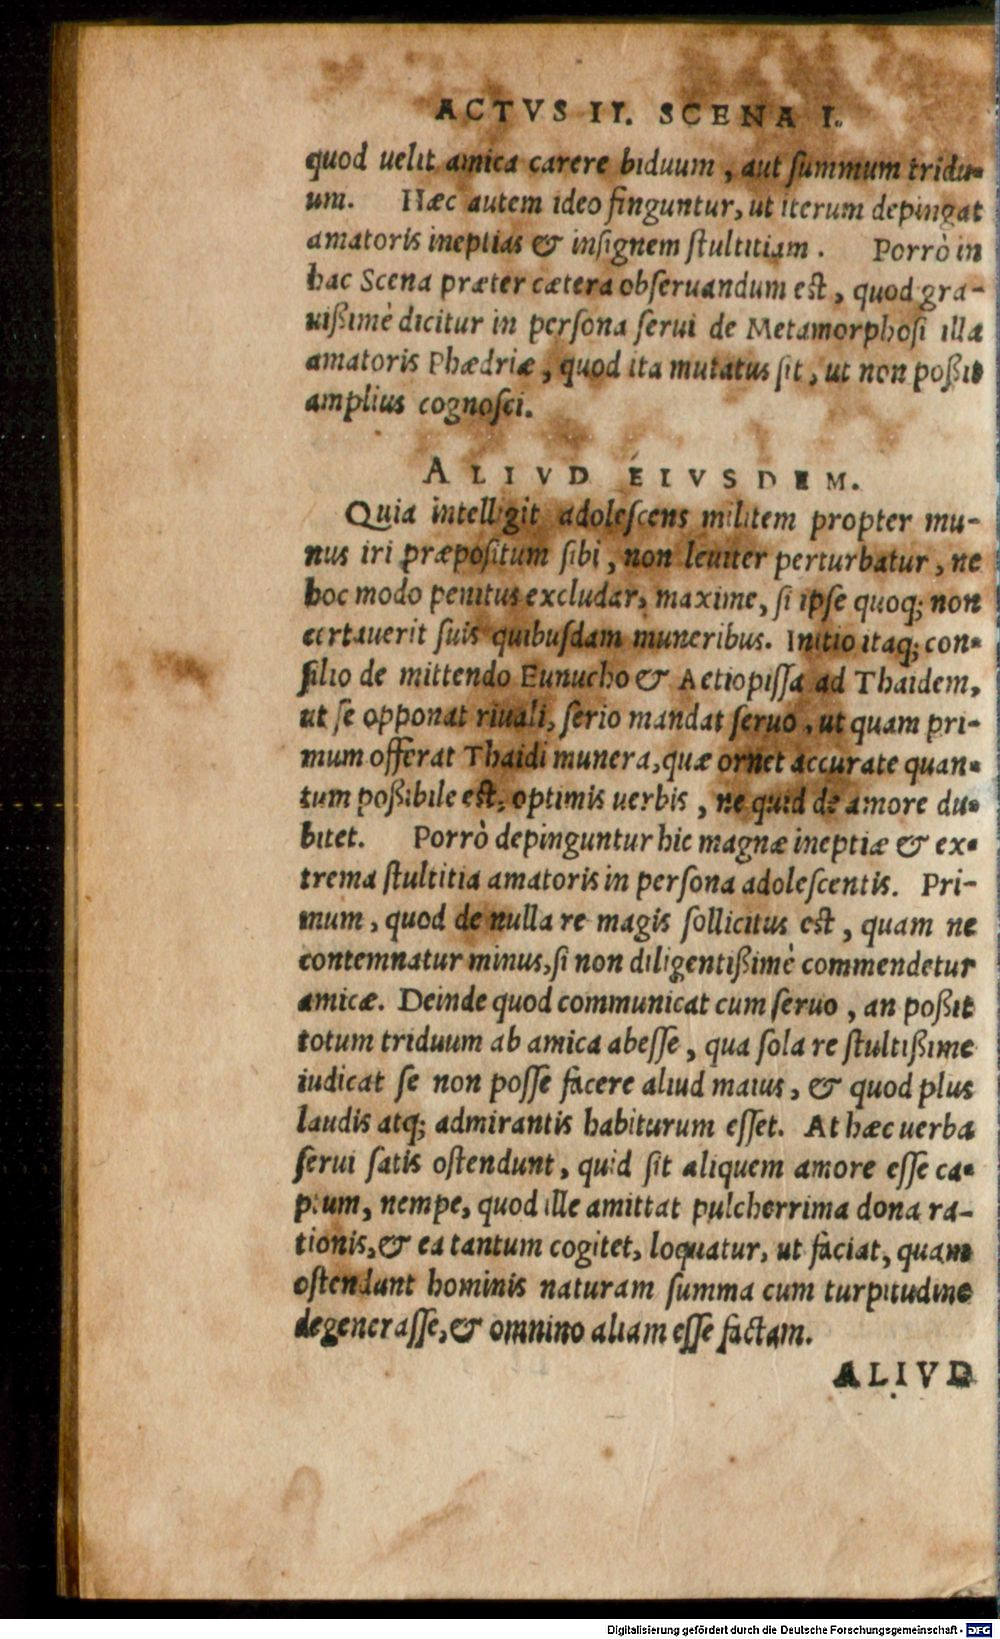 ACTVS II. SCENA I.
quod uelit amica carere biduum, aut ſummum tridu-
um. Hæc autem ideo finguntur, ut iterum depingat
amatoris ineptias & inſignem ſtultitiam. Porrò in
hac Scena præter cætera obſeruandum eſt, quod gra-
uißimè dicitur in perſona ſerui de Metamorphoſi illa
amatoris Phædriæ, quod ita mutatus ſit, ut non poßit
amplius cognoſci.
ALIVD EIVSDEM.
Quia intelligit adoleſcens militem propter mu-
nus iri præpoſitum ſibi, non leuiter perturbatur, ne
hoc modo penitus excludar, maxime, ſi ipſe quoq; non
certauerit ſuis quibuſdam muneribus. Initio itaq; con-
ſilio de mittendo Eunucho & Aetiopiſſa ad Thaidem,
ut ſe opponat riuali, ſerio mandat ſeruo, ut quam pri-
mum offerat Thaidi munera, quæ ornet accurate quan-
tum poßibile eſt, optimis uerbis, ne quid de amore du-
bitet. Porrò depinguntur hic magnæ ineptiæ & ex-
trema ſtultitia amatoris in perſona adoleſcentis. Pri-
mum, quod de nulla re magis ſollicitus eſt, quam ne
contemnatur minus, ſi non diligentißimè commendetur
amicæ. Deinde quod communicat cum ſeruo, an poßit
totum triduum ab amica abeſſe, qua ſola re ſtultißime
iudicat ſe non poſſe facere aliud maius, & quod plus
laudis atq; admirantis habiturum eſſet. At hæc uerba
ſerui ſatis oſtendunt, quid ſit aliquem amore eſſe ca-
ptum, nempe, quod ille amittat pulcherrima dona ra-
tionis, & ea tantum cogitet, loquatur, ut faciat, quam
oſtendunt hominis naturam ſumma cum turpitudine
degeneraſſe, & omnino aliam eſſe factam.
ALIVD
Digitalisierung gefördert durch die Deutsche Forschungsgemeinschaft - DFG